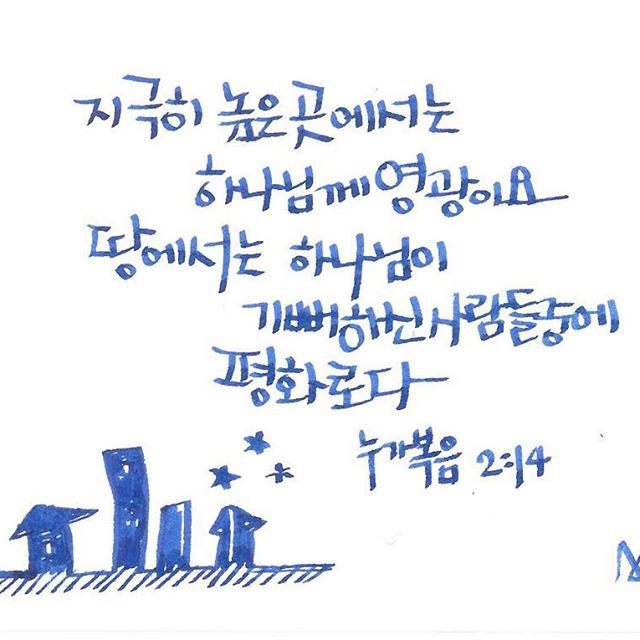 지극히 높은 곳에서는
하나님께 영광이요
땅에서는 하나님이
기뻐하신 사람들 중에
평화로다
누가복음 2:14